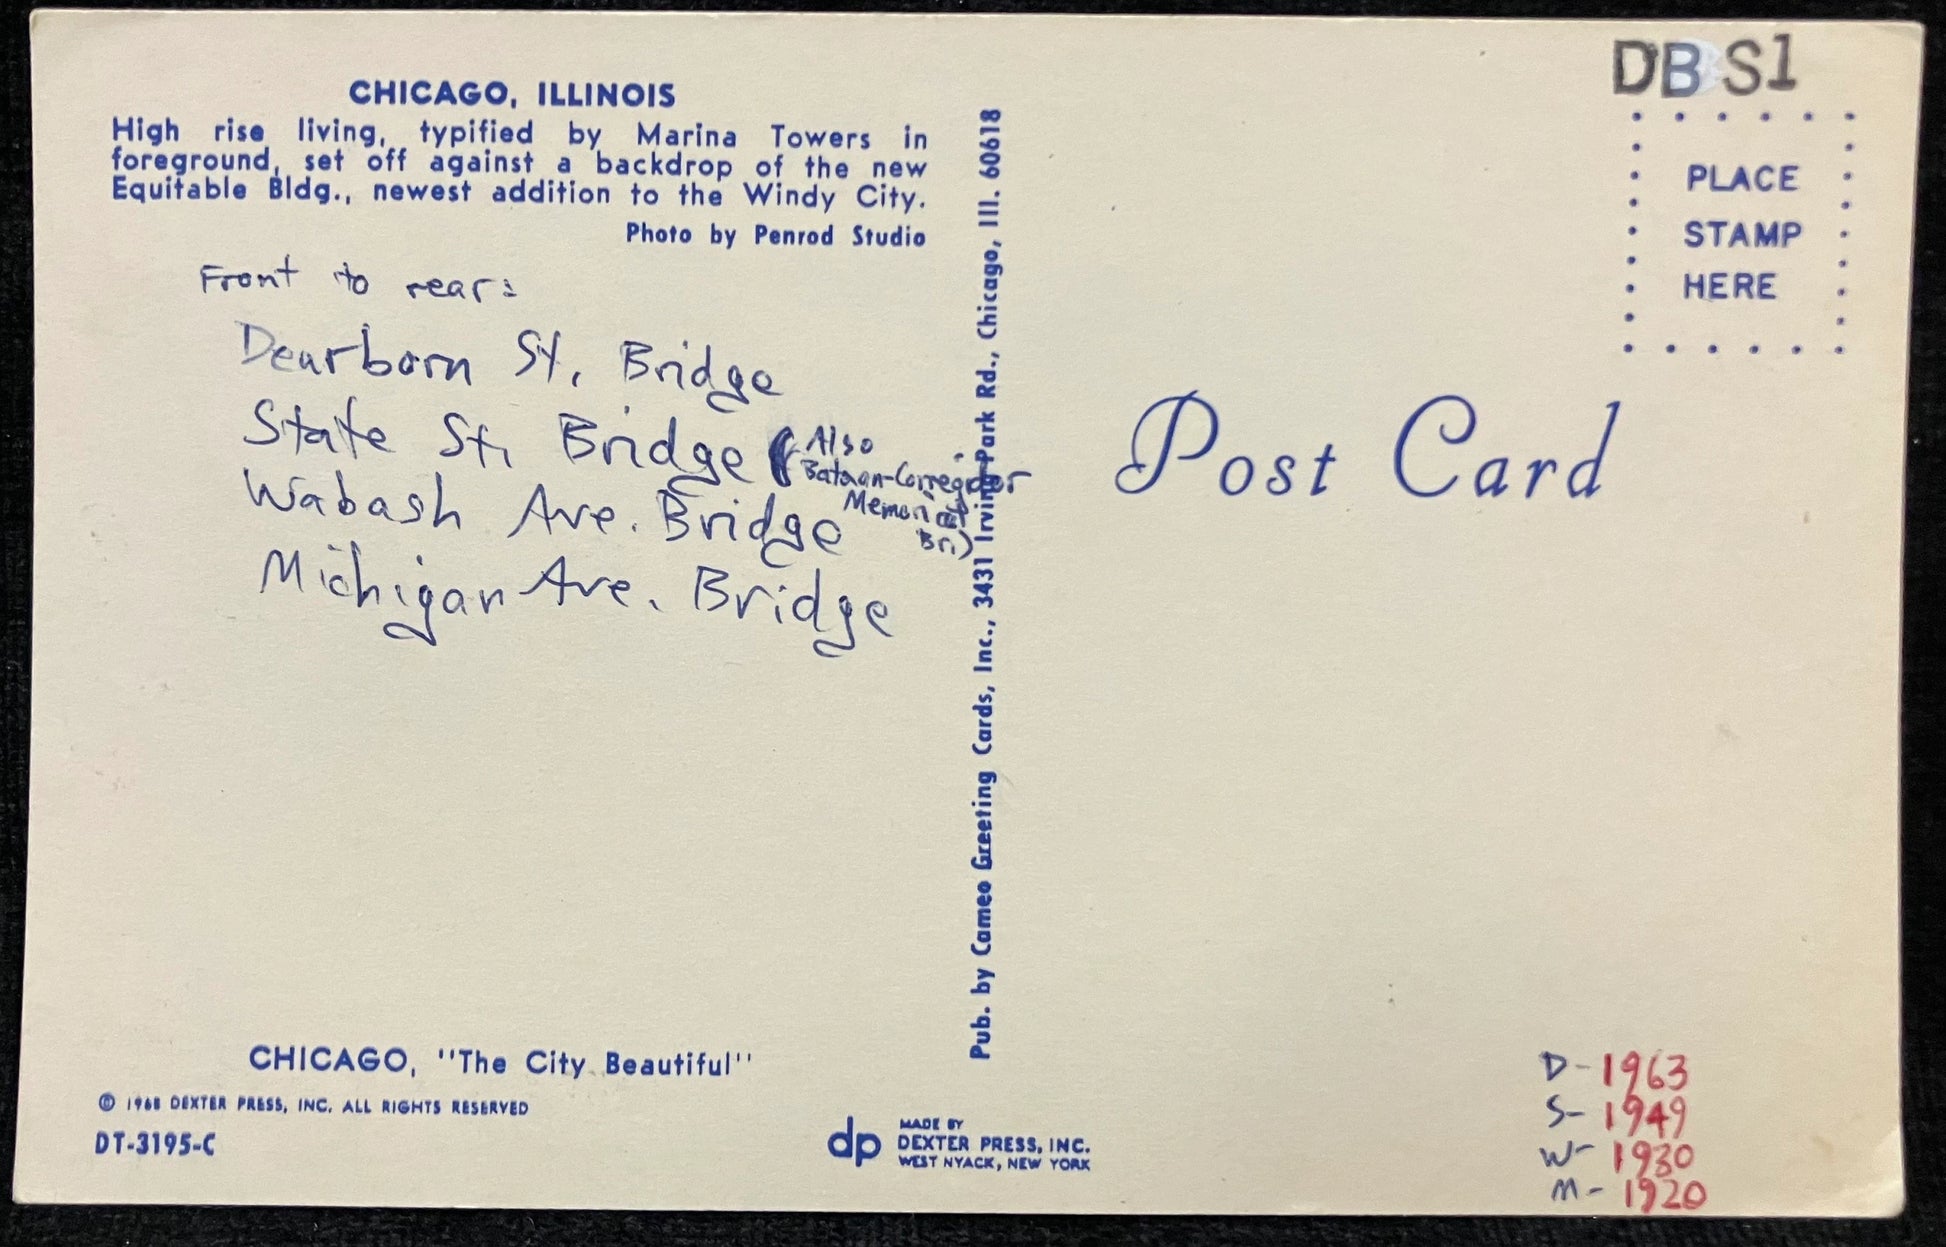 DB S1
CHICAGO, ILLINOIS
High rise living, typified by Marina Towers in
foreground, set off against a backdrop of the new
Equitable Bldg., newest addition to the Windy City.
Photo by Penrod Studio
Front to rear:
Dearborn St. Bridge
State St. Bridge (Also
Bataan-Corregidor
Memorial
Bri)
Wabash Ave. Bridge
Michigan Ave. Bridge
CHICAGO, "The City Beautiful"
© 1968 DEXTER PRESS, INC. ALL RIGHTS RESERVED
DT-3195-C
dp
MADE BY
DEXTER PRESS, INC.
WEST NYACK, NEW YORK
Pub. by Cameo Greeting Cards, Inc., 3431 Irving Park Rd., Chicago, Ill. 60618
PLACE
STAMP
HERE
Post Card
D-1963
S-1949
W-1930
M-1920